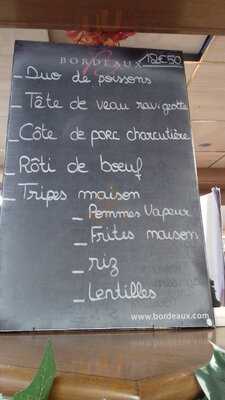 BORDEAUX 12€50
_ Duo de poissons
_ Tâte de veau ravigotte
_ Côte de porc charcutière
_ Rôti de bœuf
_ Tripes maison
_ Pommes Vapeur
_ Frites maison
_ riz
_ lentilles
www.bordeaux.com